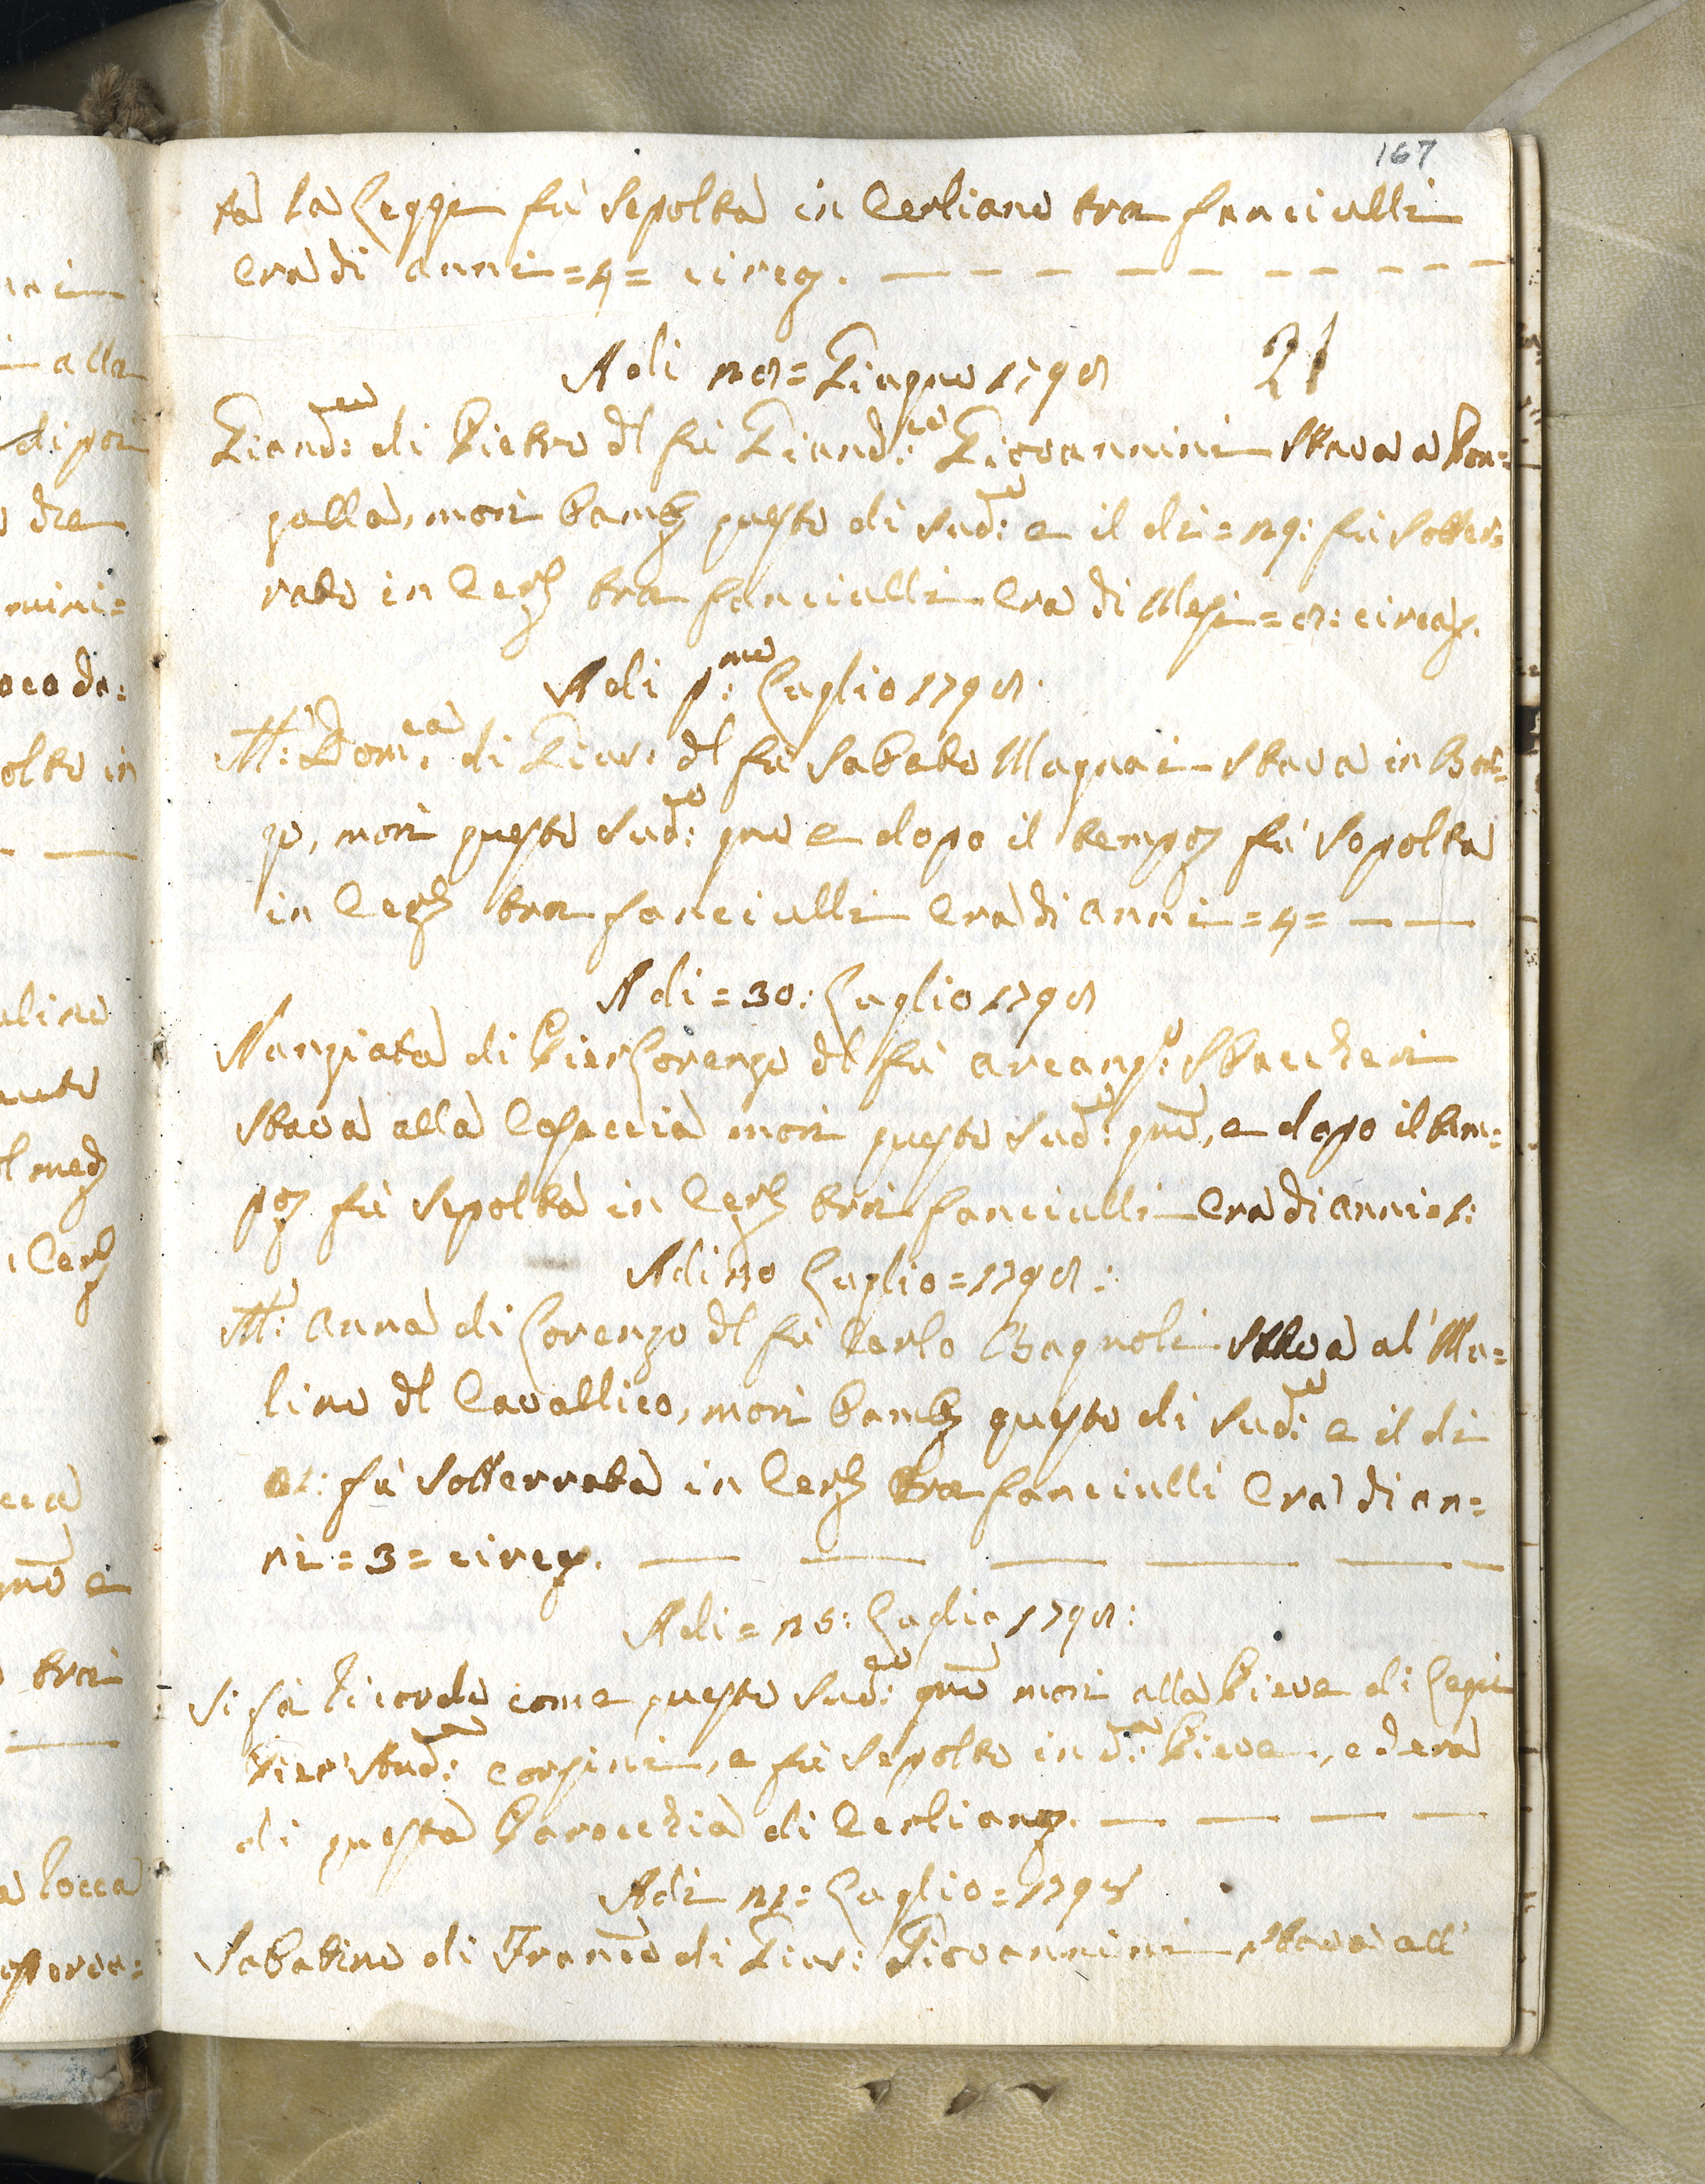 167
ta la Legge fù sepolta in Cerliano tra fanciulli
Era di anni = 4 = circa.
Adi 28 = Giugno 1798
21
Giand:co di Pietro dl fù Giand:co Giovannini stava a Bon=
galla, morì questo di sud:to e il di = 29: fù sotter=
rato in Cerl tra fanciulli Era di Mesi = 8: circa.
Adi p:mo Luglio 1798.
M:a Dom:ca di Gius: dl fù Sabato Magnai stava in Bor=
go, morì questo sud:to gno e dopo il tempo fù sepolta
in Cerl tra fanciulli Era di anni = 4 =
Adi = 30: Luglio 1798
Nunziata di Pier Lorenzo dl fù Arcang:o Stacchini
stava alla Casaccia morì questo sud:to gno, e dopo il tem=
po fù sepolta in Cerl tra fanciulli Era di anni
Adi 20 Luglio = 1798:
M:a Anna di Lorenzo dl fù Carlo Bagnoli stava al Mu=
lino dl Cavallico, morì questo di sud:to e il di
21: fù sotterrata in Cerl tra fanciulli Era di an=
ni = 3 = circa.
Adi = 25: Luglio 1798:
Si fà ricordo come questo sud:to gno morì alla Pieve di
e fù sepolto in d:a Pieve, ed era
di questa Parocchia di Cerliano.
Adi Luglio = 1798
Sabatino di Franco di Gius: Giovannini stava all'